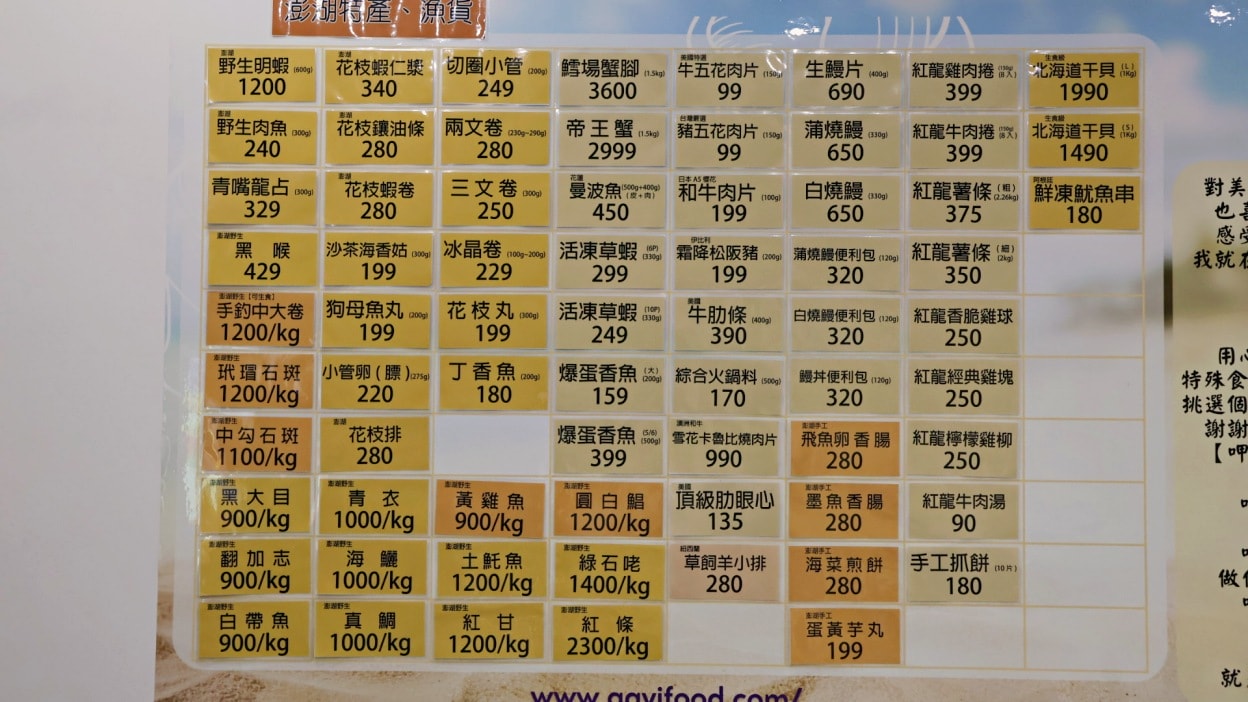 澎湖特產、漁貨
澎湖
野生明蝦 (600g)
1200
澎湖
花枝蝦仁漿
340
切圈小管 (200g)
249
鱈場蟹腳 (1.5kg)
3600
美國特選
牛五花肉片 (150g)
99
生鰻片 (400g)
690
紅龍雞肉捲 (150g)(8入)
399
生食級
北海道干貝 (L)(1Kg)
1990
澎湖
野生肉魚 (300g)
240
澎湖
花枝鑲油條
280
兩文卷 (230g~290g)
280
帝王蟹 (1.5kg)
2999
台灣嚴選
豬五花肉片 (150g)
99
蒲燒鰻 (330g)
650
紅龍牛肉捲 (150g)(8入)
399
生食級
北海道干貝 (S)(1Kg)
1490
青嘴龍占 (300g)
329
澎湖
花枝蝦卷
280
三文卷 (300g)
250
花蓮
曼波魚 (500g+400g)(皮+肉)
450
日本A5櫻花
和牛肉片 (100g)
199
白燒鰻 (330g)
650
紅龍薯條 (粗)(2.26kg)
375
阿根廷
鮮凍魷魚串
180
澎湖野生
黑喉
429
沙茶海香菇 (300g)
199
冰晶卷 (100g~200g)
229
活凍草蝦 (6P)(330g)
299
伊比利
霜降松阪豬 (200g)
199
蒲燒鰻便利包 (120g)
320
紅龍薯條 (細)(2kg)
350
澎湖野生【可生食】
手釣中大卷
1200/kg
狗母魚丸 (200g)
199
花枝丸 (300g)
199
活凍草蝦 (10P)(330g)
249
美國
牛肋條 (400g)
390
白燒鰻便利包 (120g)
320
紅龍香脆雞球
250
澎湖野生
玳瑁石斑
1200/kg
小管卵(膘) (275g)
220
丁香魚 (200g)
180
爆蛋香魚 (大)(200g)
159
綜合火鍋料 (500g)
170
鰻丼便利包 (120g)
320
紅龍經典雞塊
250
澎湖野生
中勾石斑
1100/kg
澎湖
花枝排
280
爆蛋香魚 (5/6)(500g)
399
澳洲和牛
雪花卡魯比燒肉片
990
澎湖手工
飛魚卵香腸
280
紅龍檸檬雞柳
250
澎湖野生
黑大目
900/kg
澎湖野生
青衣
1000/kg
澎湖野生
黃雞魚
900/kg
澎湖野生
圓白鯧
1200/kg
美國
頂級肋眼心
135
澎湖手工
墨魚香腸
280
紅龍牛肉湯
90
澎湖野生
翻加志
900/kg
澎湖野生
海鱺
1000/kg
澎湖野生
土魠魚
1200/kg
澎湖野生
綠石咾
1400/kg
紐西蘭
草飼羊小排
280
澎湖手工
海菜煎餅
280
手工抓餅 (10片)
180
澎湖野生
白帶魚
900/kg
澎湖野生
真鯛
1000/kg
澎湖野生
紅甘
1200/kg
澎湖野生
紅條
2300/kg
澎湖手工
蛋黃芋丸
199
對美
也
感
我就在
用心
特殊食
挑選個
謝謝
【呷
做
就
www.gayifood.com/